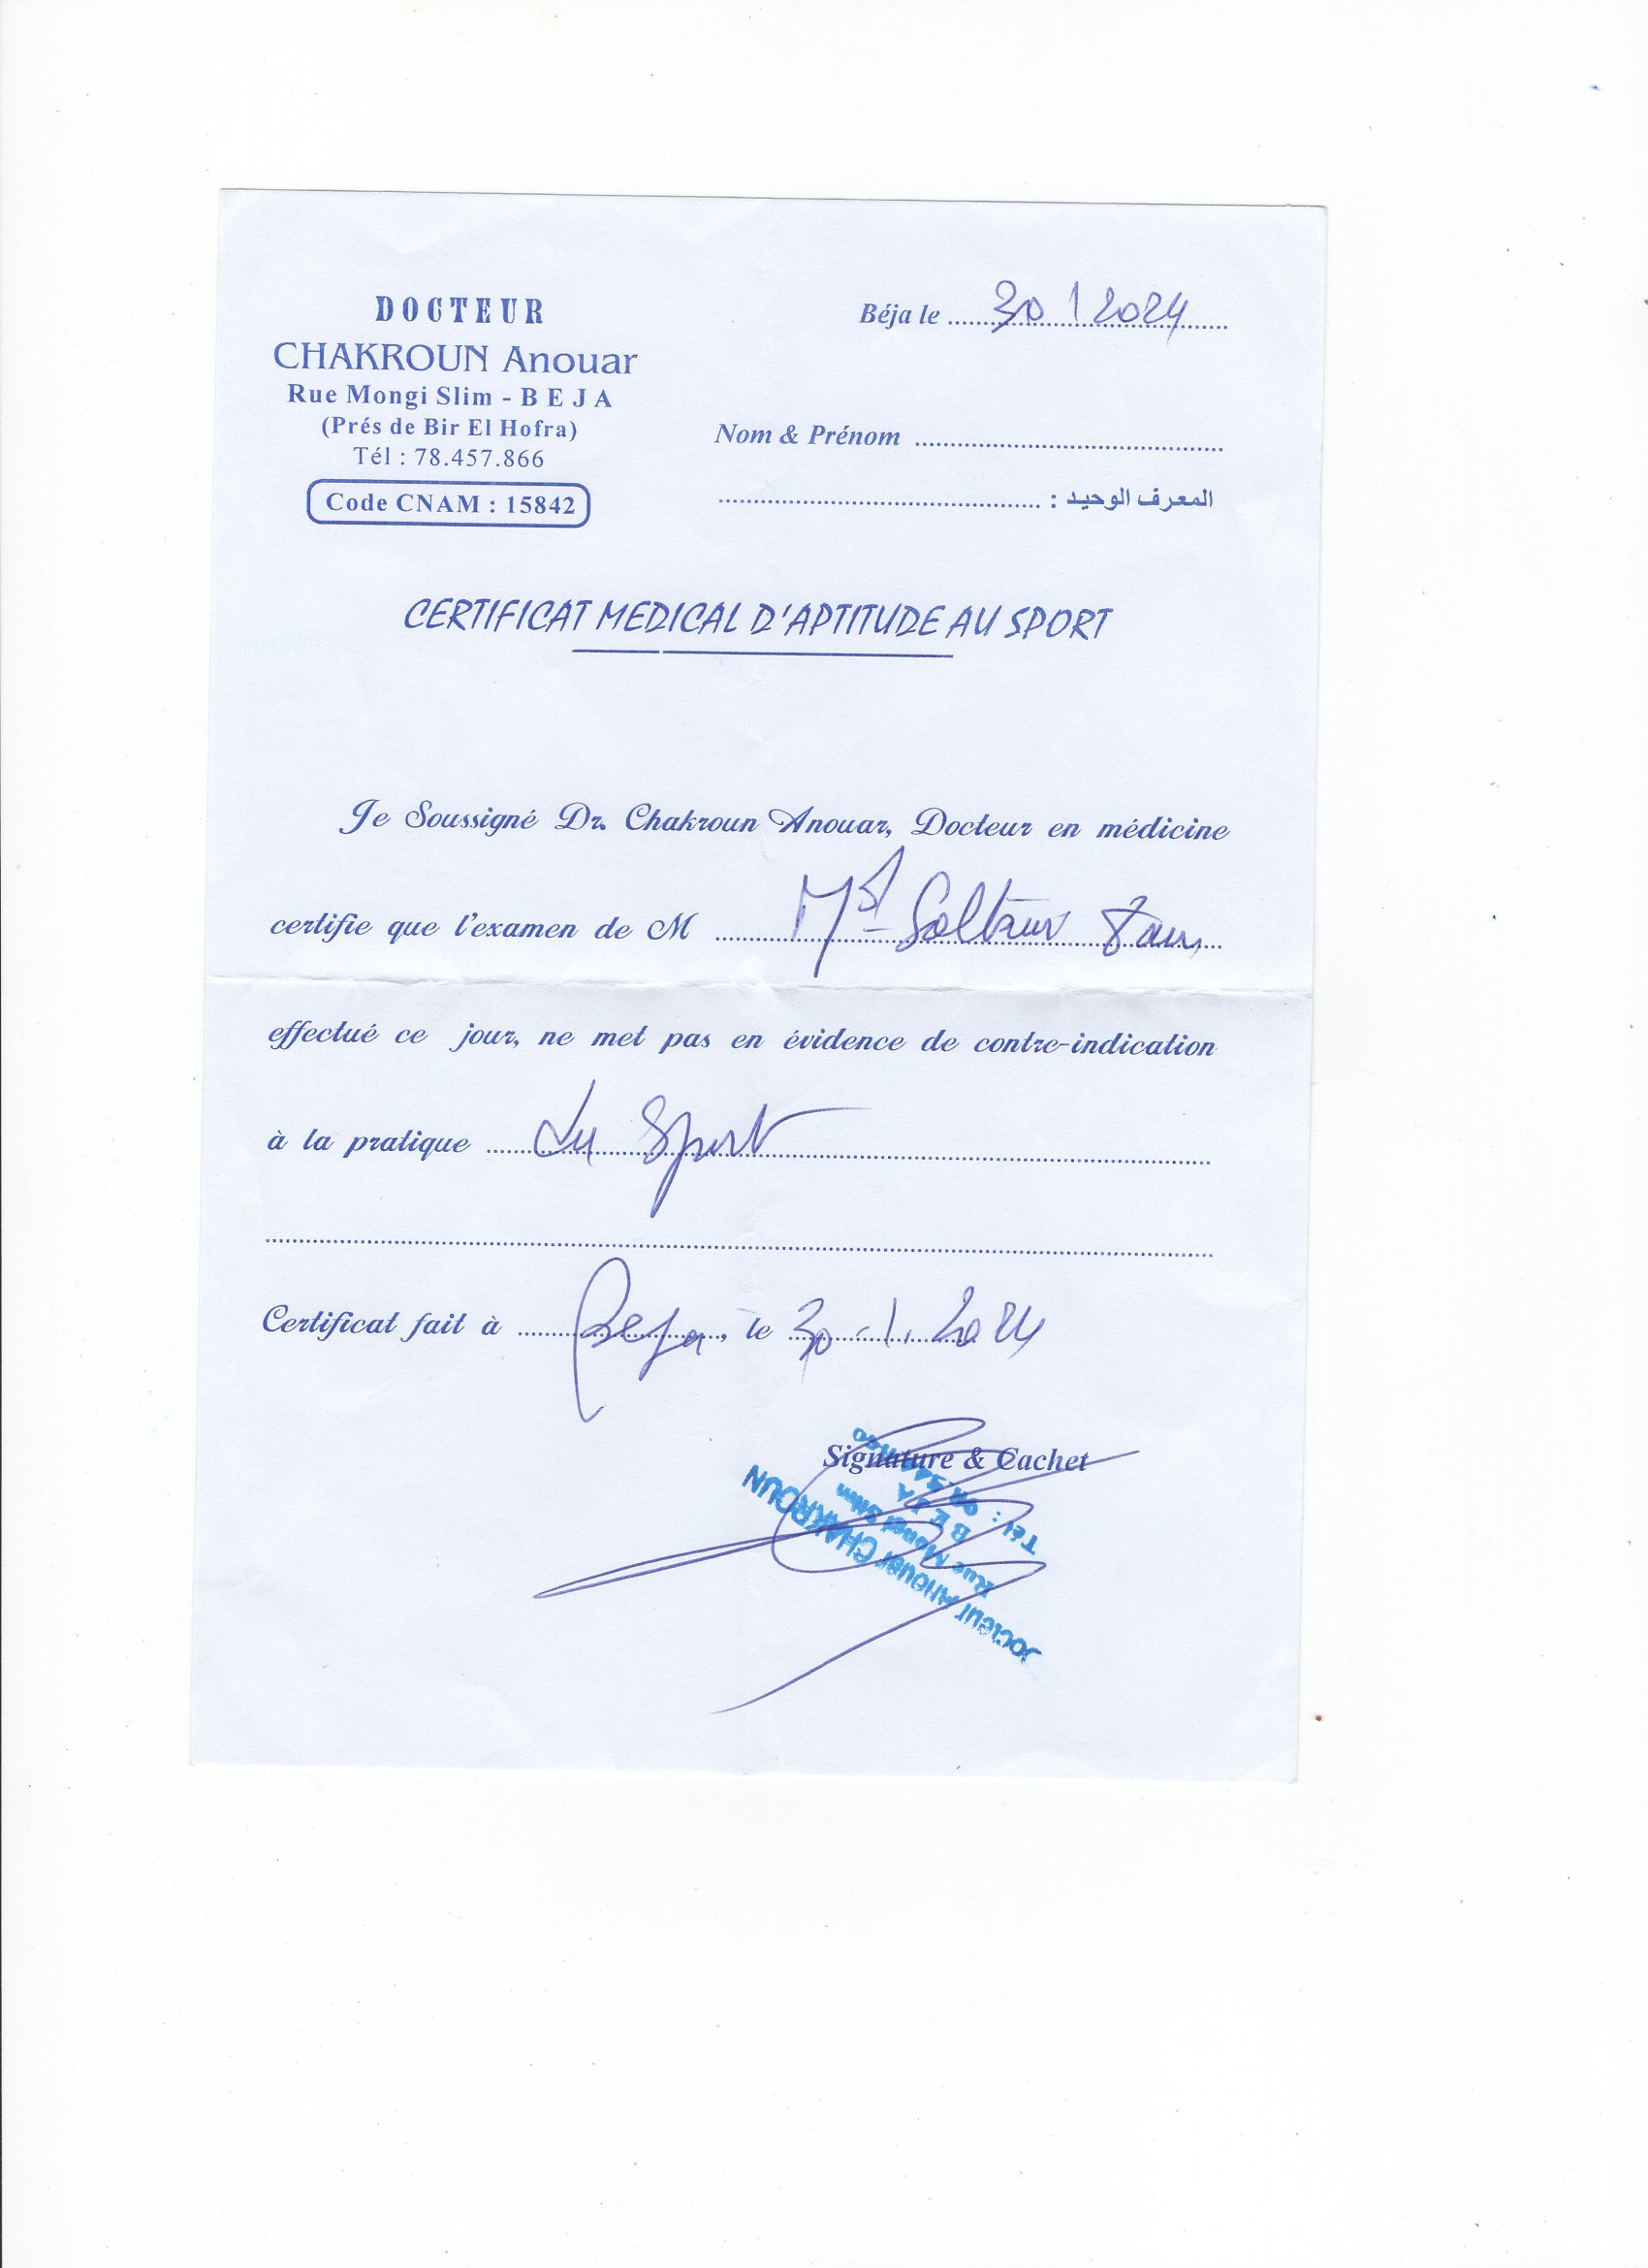 DOCTEUR
CHAKROUN Anouar
Rue Mongi Slim - B E J A
(Prés de Bir El Hofra)
Tél : 78.457.866
Code CNAM : 15842
Béja le 30 1 2024
Nom & Prénom
المعرف الوحيد :
CERTIFICAT MEDICAL D'APTITUDE AU SPORT
Je Soussigné Dr. Chakroun Anouar, Docteur en médicine
certifie que l'examen de M
effectué ce jour, ne met pas en évidence de contre-indication
à la pratique du Sport
Certificat fait à Beja, le 30.1.2024
Signature & Cachet
Docteur Anouar CHAKROUN
Rue Mongi Slim
BEJA
Tél :